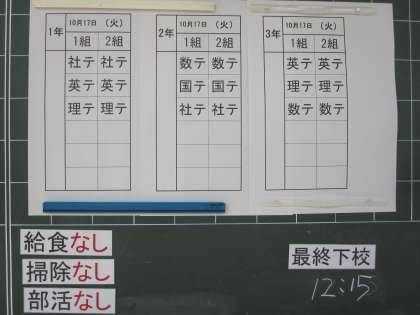 1年 10月17日 (火)
1組 2組
社テ 社テ
英テ 英テ
理テ 理テ
2年 10月17日 (火)
1組 2組
数テ 数テ
国テ 国テ
社テ 社テ
3年 10月17日 (火)
1組 2組
英テ 英テ
理テ 理テ
数テ 数テ
給食なし
掃除なし
部活なし
最終下校
12:15